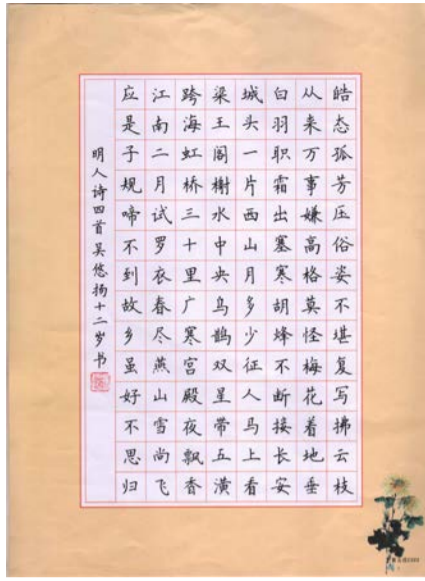 皓态孤芳压俗姿不堪复写拂云枝
从来万事嫌高格莫怪梅花着地垂
白羽职霜出塞寒胡烽不断接长安
城头一片西山月多少征人马上看
梁王阁榭水中央乌鹊双星带五潢
跨海虹桥三十里广寒宫殿夜飘香
江南二月试罗衣春尽燕山雪尚飞
应是子规啼不到故乡虽好不思归
明人诗四首吴悠扬十二岁书